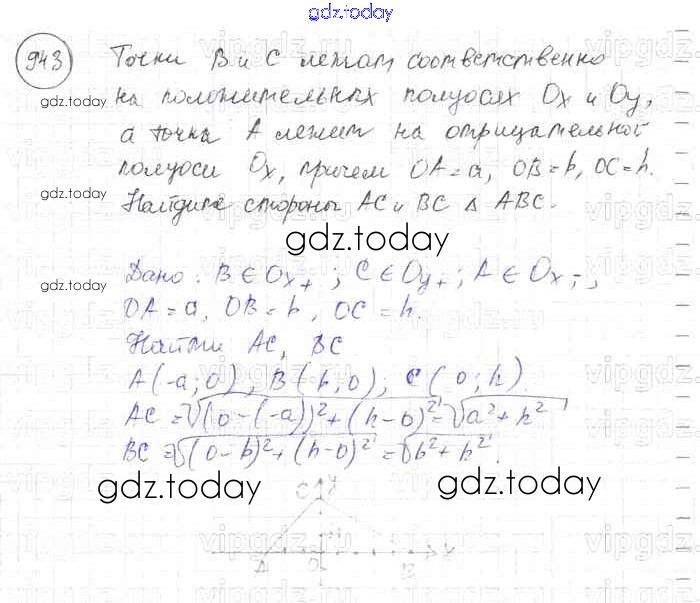 gdz.today
943 Точки B и C лежат соответственно
на положительных полуосях Ox и Oy,
а точка A лежит на отрицательной
полуоси Ox, причем OA=a, OB=b, OC=h.
Найдите стороны AC и BC Δ ABC.
gdz.today
Дано: B∈Ox₊; C∈Oy₊; A∈Ox₋,
OA=a, OB=b, OC=h.
Найти AC, BC
A(-a;0); B(b;0); C(0;h)
AC=√(0-(-a))²+(h-0)²=√a²+h²
BC=√(0-b)²+(h-0)²=√b²+h².
gdz.today
gdz.today
C y
A O B x
gdz.today